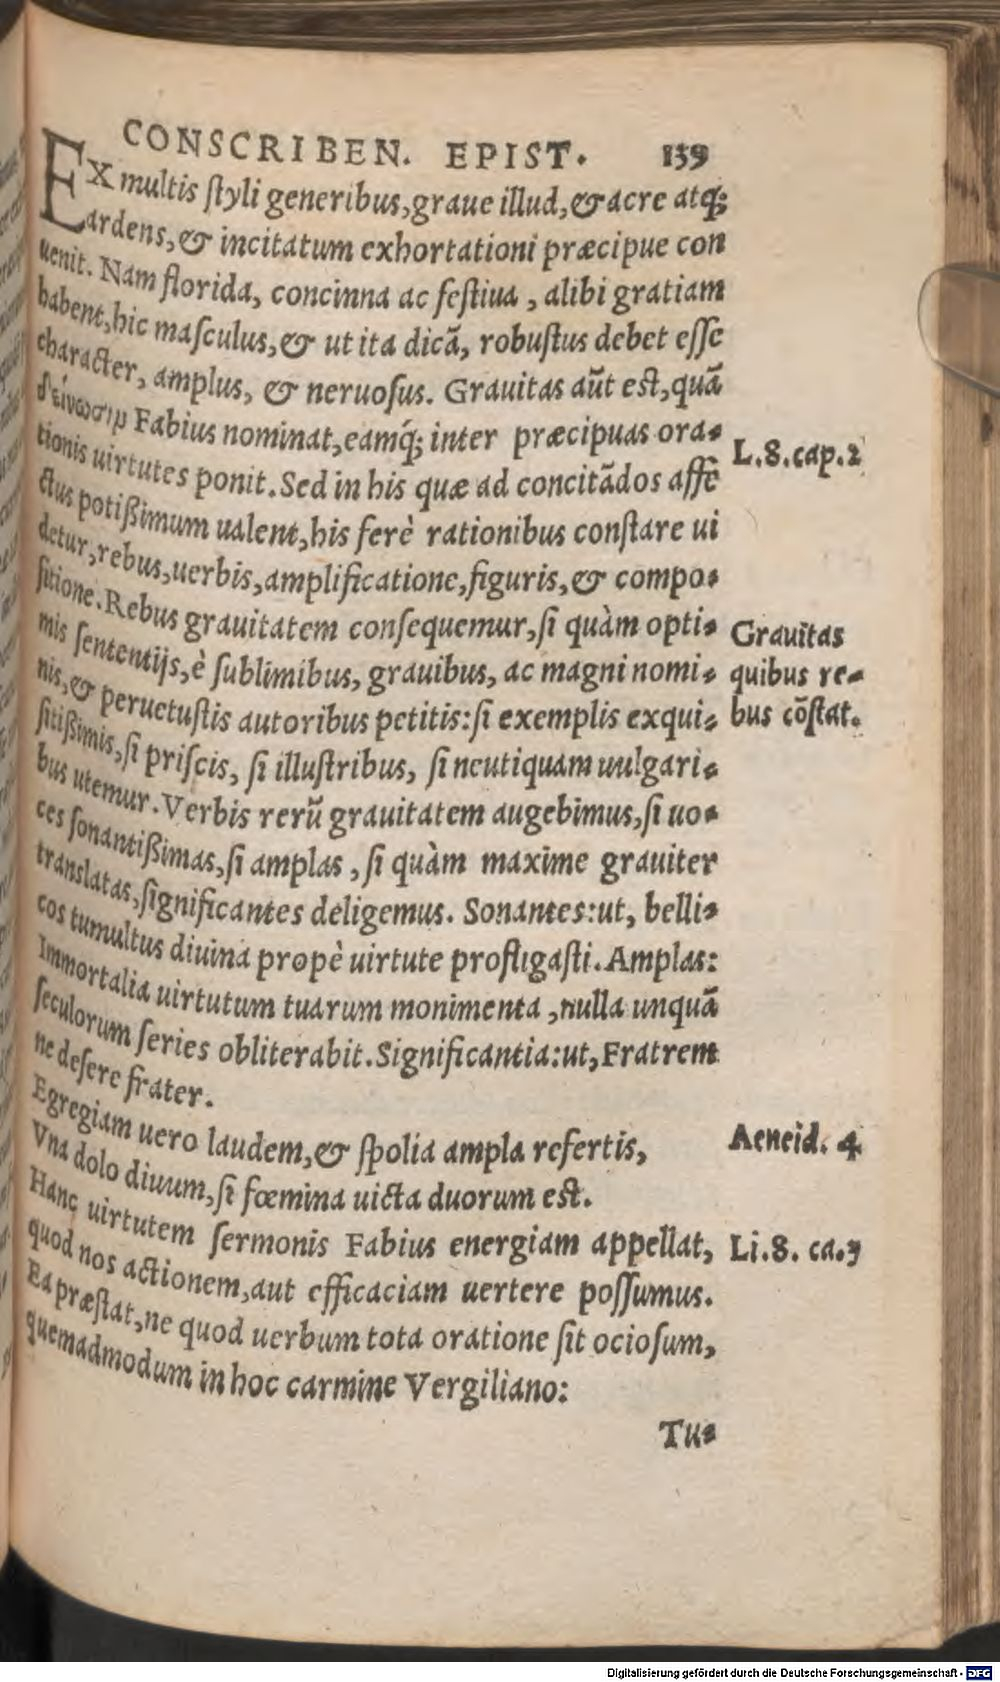 CONSCRIBEN. EPIST. 139
EX multis ſtyli generibus, graue illud, & acre atq;
ardens, & incitatum exhortationi præcipue con
uenit. Nam florida, concinna ac feſtiua, alibi gratiam
habent, hic maſculus, & ut ita dicā, robuſtus debet eſſe
character, amplus, & neruoſus. Grauitas aūt eſt, quā
δείνωσιμ Fabius nominat, eamq́; inter præcipuas ora-
tionis uirtutes ponit. Sed in his quæ ad concitādos affe
L.8.cap.2
ctus potißimum ualent, his ferè rationibus conſtare ui
detur, rebus, uerbis, amplificatione, figuris, & compo-
ſitione. Rebus grauitatem conſequemur, ſi quàm opti-
Grauitas
mis ſententijs, è ſublimibus, grauibus, ac magni nomi-
quibus re-
nis, & peruetuſtis autoribus petitis: ſi exemplis exqui-
bus cōſtat.
ſitißimis, ſi priſcis, ſi illuſtribus, ſi neutiquam uulgari-
bus utemur. Verbis rerū grauitatem augebimus, ſi uo-
ces ſonantißimas, ſi amplas, ſi quàm maxime grauiter
translatas, ſignificantes deligemus. Sonantes: ut, belli-
cos tumultus diuina propè uirtute profligaſti. Amplas:
Immortalia uirtutum tuarum monimenta, nulla unquā
ſeculorum ſeries obliterabit. Significantia: ut, Fratrem
ne deſere frater.
Egregiam uero laudem, & ſpolia ampla refertis,
Aeneid. 4
Vna dolo diuum, ſi fœmina uicta duorum eſt.
Hanc uirtutem ſermonis Fabius energiam appellat,
Li.8. ca.3
quod nos actionem, aut efficaciam uertere poſſumus.
Ea præſtat, ne quod uerbum tota oratione ſit ocioſum,
quemadmodum in hoc carmine Vergiliano:
Tu-
Digitalisierung gefördert durch die Deutsche Forschungsgemeinschaft - DFG